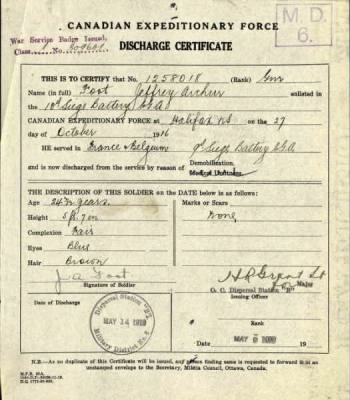 CANADIAN EXPEDITIONARY FORCE
M. D. 6.
War Service Badge Issued,
Class
DISCHARGE CERTIFICATE
THIS IS TO CERTIFY that No. 1258018 (Rank) Gnr
Name (in full) Foot Jeffrey Archer enlisted in
the 10th Siege Battery C.G.A.
CANADIAN EXPEDITIONARY FORCE at Halifax N.S. on the 27
day of October 1916
HE served in France & Belgium 9th Siege Battery C.G.A
and is now discharged from the service by reason of Demobilization.
THE DESCRIPTION OF THIS SOLDIER on the DATE below is as follows:
Age 24 years. Marks or Scars
Height 5 ft. 7 in None,
Complexion Fair
Eyes Blue
Hair Brown
J. A. Foot
Signature of Soldier
Major
O. C. Dispersal Station
Issuing Officer
Dispersal Station
MAY 14 1919
Military District No. 6
MAY 1919 19
Date of Discharge
N.B.—As no duplicate of this Certificate will be issued, any person finding same is requested to forward it in an
unstamped envelope to the Secretary, Militia Council, Ottawa, Canada.